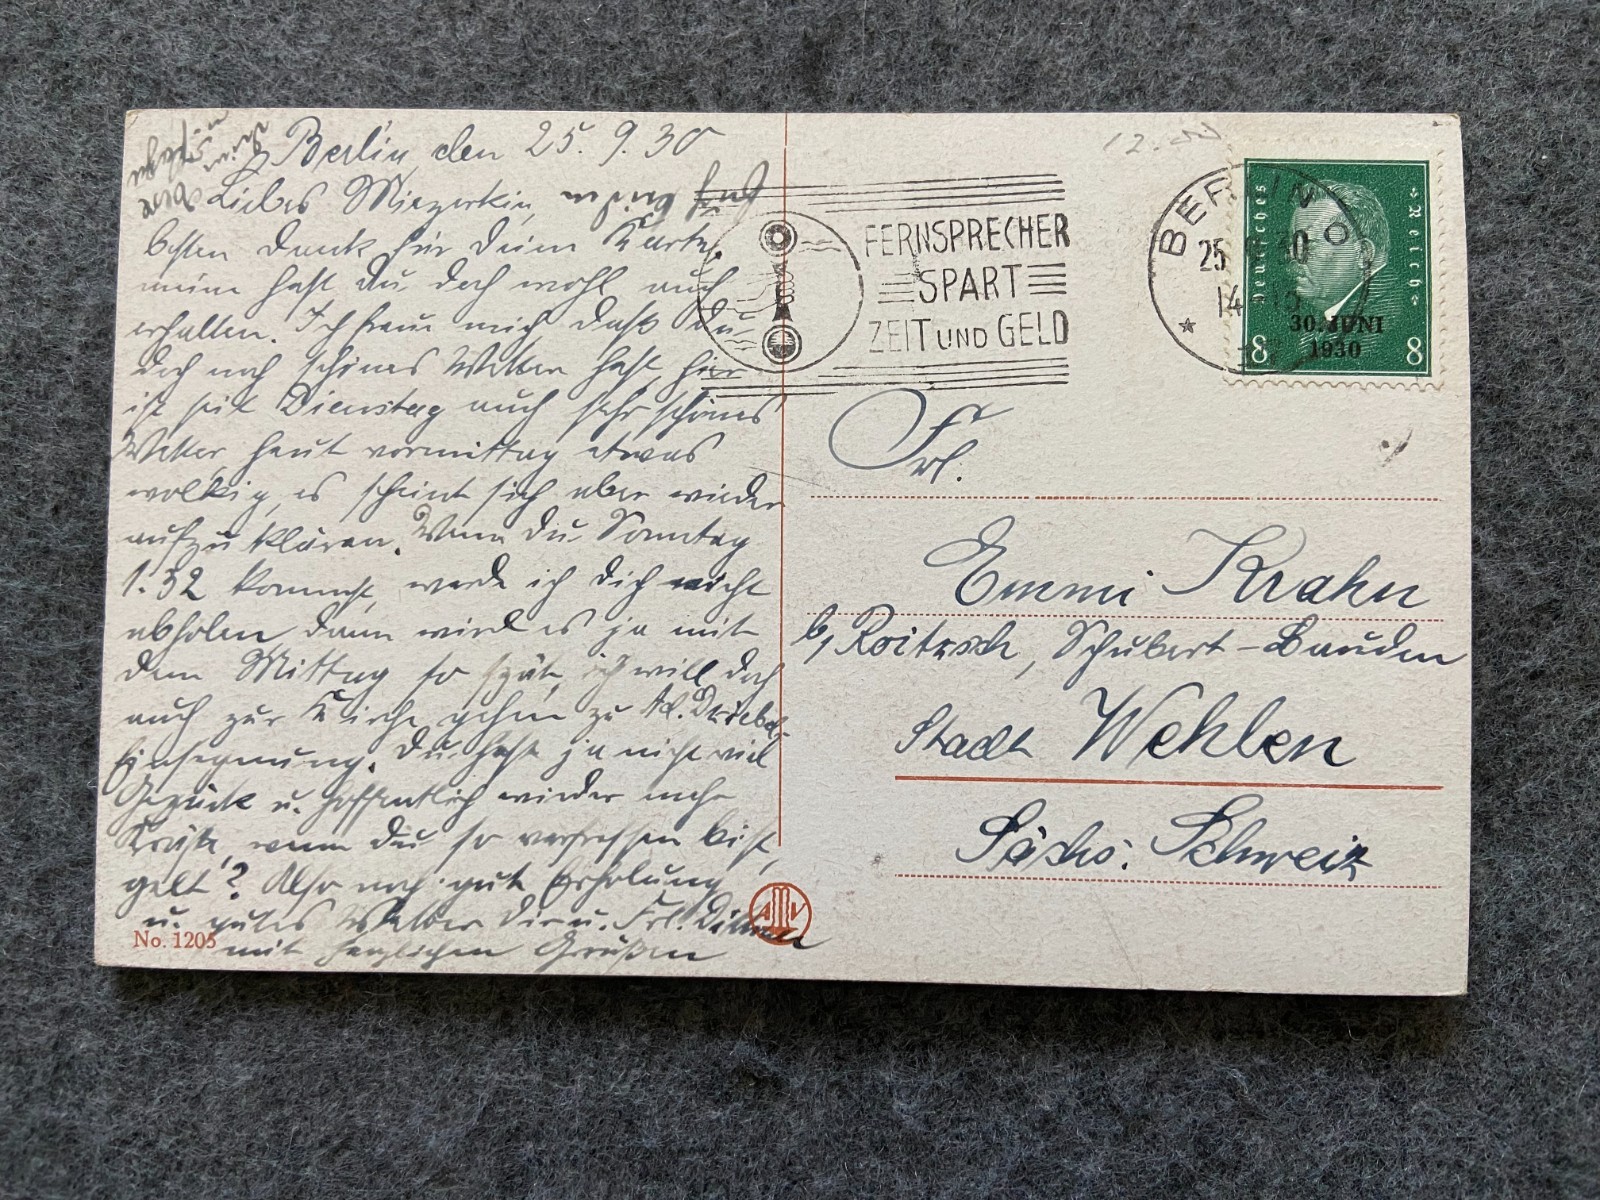 Berlin den 25. 9. 30
Liebes Miezerkin,
besten Dank für Deine Karte,
meine hast Du doch wohl auch
erhalten. Ich freue mich daß Du
doch noch schönes Wetter hast, hier
ist seit Dienstag auch sehr schönes
Wetter, heut vormittag etwas
wolkig, es scheint sich aber wieder
aufzuklären. Wenn Du Sonntag
1.52 kommst, werde ich Dich nicht
abholen dann wird es ja mit
dem Mittag so spät, ich will doch
auch zur Kirche gehen zu
Einsegnung. Du hast ja nicht viel
Gepäck u. hoffentlich wieder mehr
Kräfte, wenn Du so verfressen bist,
gelt? Also noch gute Erholung
u. gutes Wetter Dir u. Frl.
mit herzlichen Grüßen
No. 1205
FERNSPRECHER
SPART
ZEIT UND GELD
BERLIN
25 30
14
Deutsches Reich
30. JUNI
1930
8 8
Frl.
Emmi Krahn
b/ Roitzsch, Schubert-Bauden
Stadt Wehlen
Sächs. Schweiz